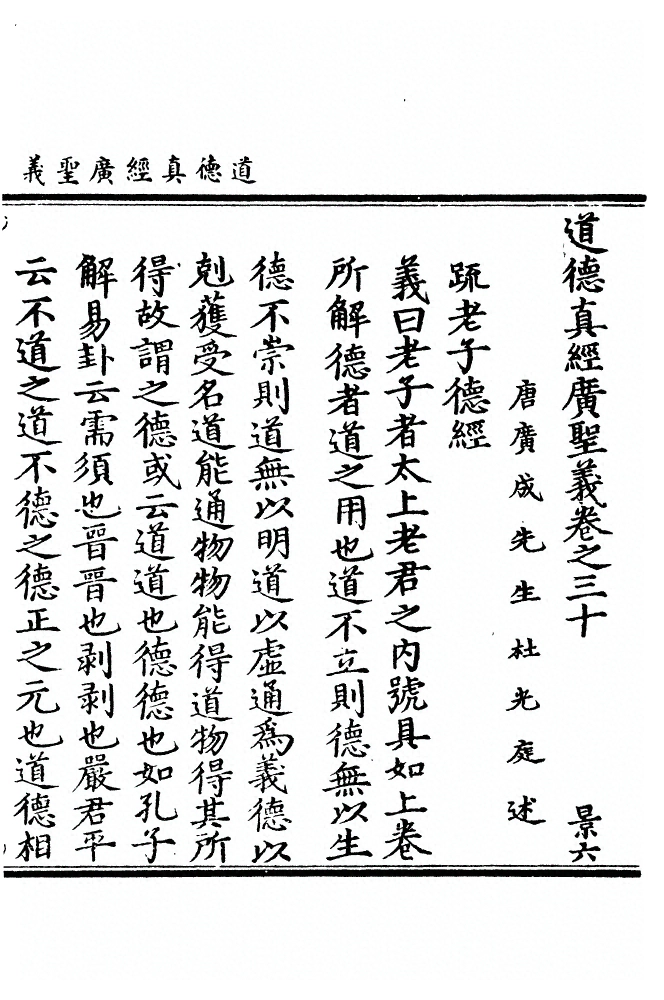 道德真經廣聖義
道德真經廣聖義卷之三十 景六
唐廣成先生杜光庭述
疏老子德經
義曰老子者太上老君之内號具如上卷
所解德者道之用也道不立則德無以生
德不崇則道無以明道以虛通爲義德以
剋獲受名道能通物物能得道物得其所
得故謂之德或云道道也德德也如孔子
解易卦云需須也晉晉也剥剥也嚴君平
云不道之道不德之德正之元也道德相